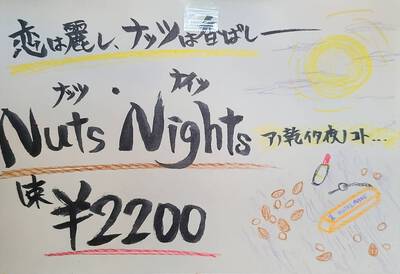 恋は麗し、ナッツは香ばしー
ナッツ・ナイツ
Nuts Nights
アノ乾イタ夜ノコト...
1束 ¥2200